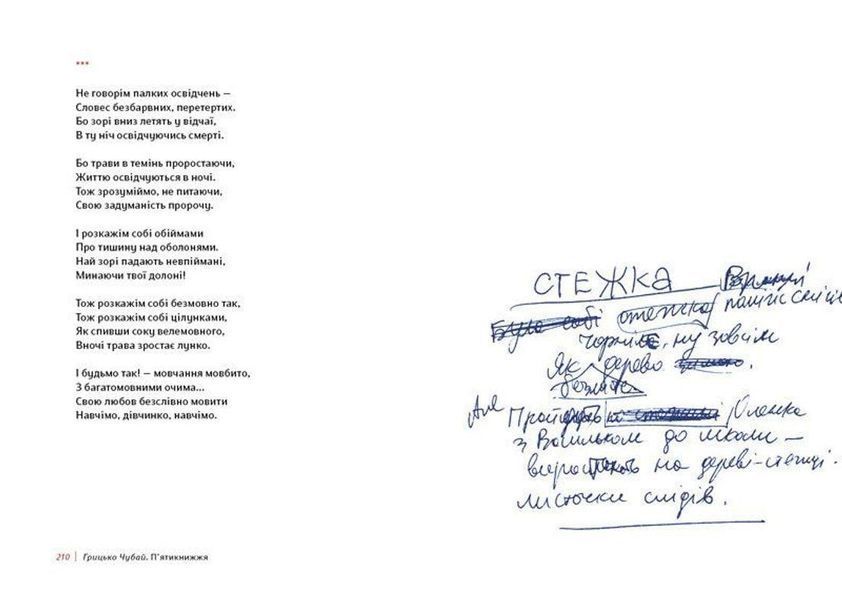 ***
Не говорім палких освідчень —
Словес безбарвних, перетертих.
Бо зорі вниз летять у відчаї,
В ту ніч освідчуючись смерті.
Бо трави в темінь проростаючи,
Життю освідчуються в ночі.
Тож зрозуміймо, не питаючи,
Свою задуманість пророчу.
І розкажім собі обіймами
Про тишину над оболонями.
Най зорі падають невпіймані,
Минаючи твої долоні!
Тож розкажім собі безмовно так,
Тож розкажім собі цілунками,
Як спивши соку велемовного,
Вночі трава зростає лунко.
І будьмо так! — мовчання мовбито,
З багатомовними очима...
Свою любов безслівно мовити
Навчімо, дівчинко, навчімо.
210 | Грицько Чубай. П'ятикнижжя
СТЕЖКА
Була собі стежка
Чорніє, ну зовсім
Як дерево
безлисте
Але Оленка
з Васильком до школи —
на дереві-стежці
листочки слідів.